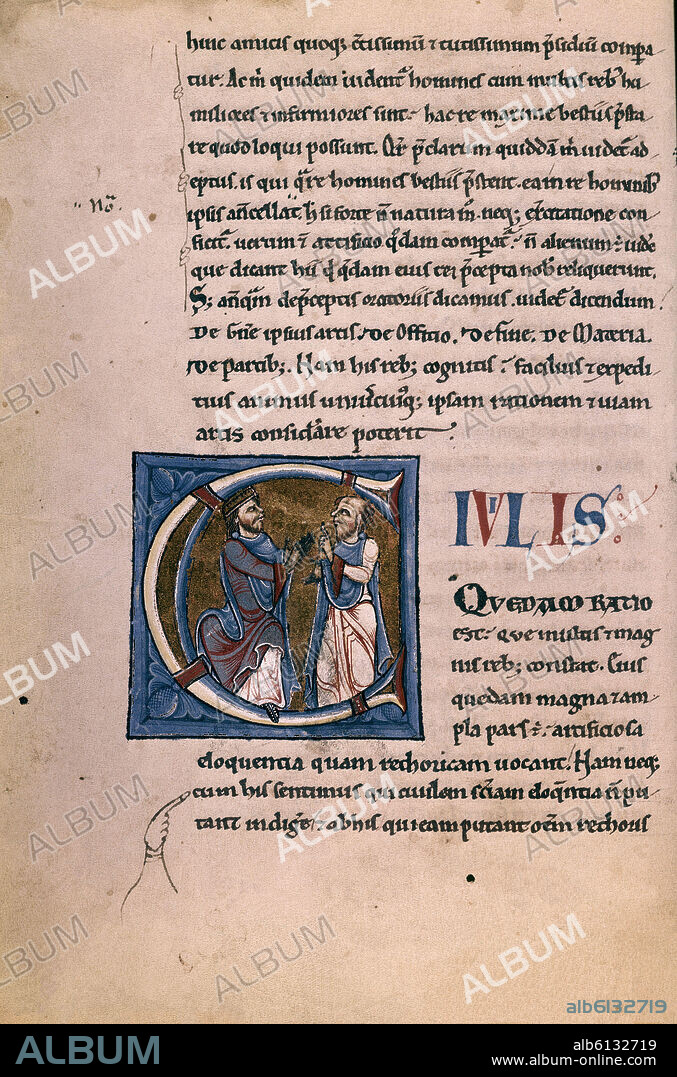 hinc amicis quoq; c̄tissimum ⁊ tutissimum p̄sidiū compa
tur. Ac m̄ quidem uident̄ homines cum multis reb; hu
miliores ⁊ infirmiores sint. hac re maxime bestiis p̄sta
re quod loqui possunt. Qr̄ p̄clarum quiddā m̄ uidet̄ ad
eptus. is qui q̄ re homines bestiis p̄stent. ea in re hominib;
ipsis antecellat. h̄ si forte n̄ natura m̄. neq; exercitatione con
ficit̄. uerum ⁊ artificio q̄dam comparat̄. n̄ alienum ē uide
que dicant hii q̄ q̄dam eius rei p̄cepta nob̄ reliquerunt.
S; anq̄m de p̄ceptis oratoriis dicamus. uidet̄ dicendum
De ḡne ipsius artis. De Officio. De fine. De Materia.
De partib;. Nam his reb; cognitis. facilius ⁊ expedi
tius animus uniuscuiq; ipsam rationem ⁊ uiam
artis considerare poterit.
No
C
IVLIS
QVEDAM RATIO
est. que multis ⁊ mag
nis reb; constat. Eius
quedam magna ⁊ am
pla pars ē. artificiosa
eloquentia quam rethoricam uocant. Nam neq;
cum his sentimus qui ciuilem sciam eloq̄ntia n̄ pu
tant indigẽ. ⁊ ab his qui eam putant om̄em rethoris
ALBUM
alb6132719
ALBUM
alb6132719
www.album-online.com